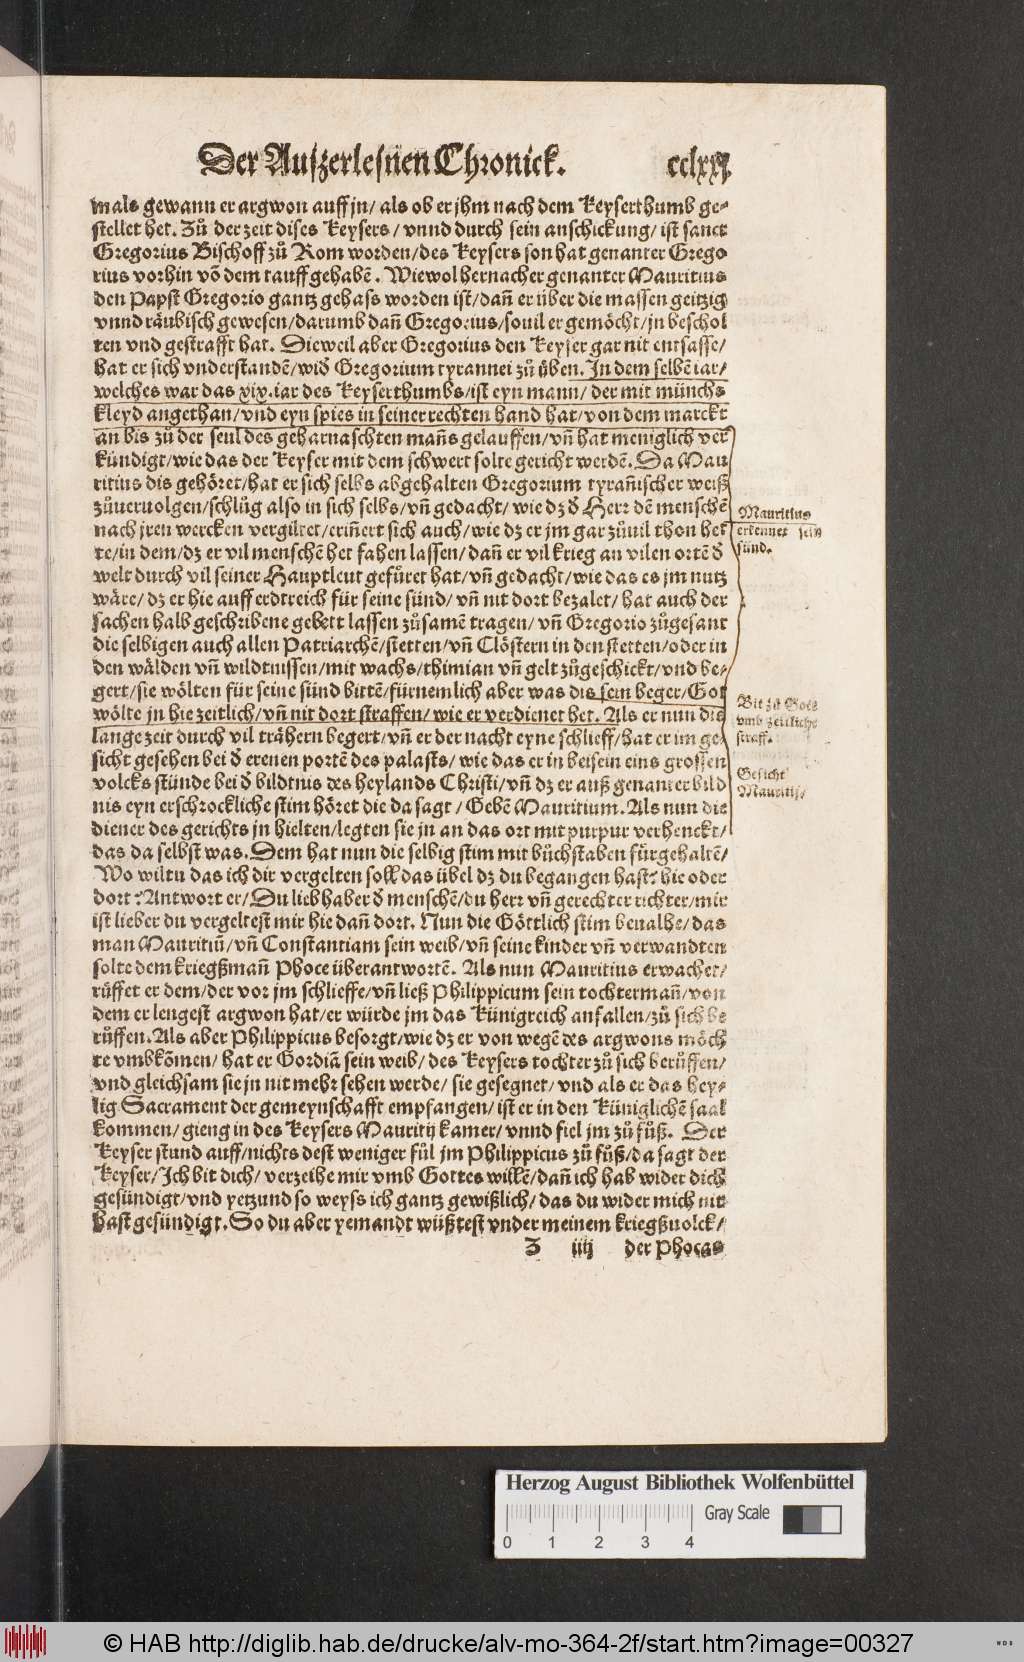 Der Auſzerleſnen Chronick. cclxxj.
mals gewann er argwon auff jn/ als ob er jhm nach dem Keyſerthumb ge-
ſtellet het. Zů der zeit diſes Keyſers / vnnd durch ſein anſchickung/ iſt ſanct
Gregorius Biſchoff zů Rom worden/des Keyſers ſon hat genanter Grego
rius vorhin võ dem tauff gehabẽ. Wiewol hernacher genanter Mauritius
den Papſt Gregorio gantz gehaſs worden iſt/dañ er über die maſſen geitzig
vnnd räubiſch geweſen/darumb dañ Gregorius/ſouil er gemöcht/jn beſchol
ten vnd geſtrafft hat. Dieweil aber Gregorius den Keyſer gar nit entſaſſe/
hat er ſich vnderſtandẽ/wid̃ Gregorium tyrannei zů üben. In dem ſelbẽ iar/
welches war das xix. iar des Keyſerthumbs/iſt eyn mann/ der mit münchs
kleyd angethan/vnd eyn ſpies in ſeiner rechten hand hat/von dem marckt
an bis zů der ſeul des geharnaſchten mañs gelauffen/vñ hat meniglich ver
kündigt/wie das der Keyſer mit dem ſchwert ſolte gericht werdẽ. Da Mau
ritius dis gehöret/hat er ſich ſelbs abgehalten Gregorium tyrañiſcher weiß
zůueruolgen/ſchlůg alſo in ſich ſelbs/vñ gedacht/ wie dz d̃ Herr dẽ menſchẽ
nach jren wercken vergiltet/eriñert ſich auch/wie dz er jm gar zůuil thon het
te/in dem/dz er vil menſchẽ het fahen laſſen/ dañ er vil krieg an vilen ortẽ d̃
welt durch vil ſeiner Hauptleut gefüret hat/vñ gedacht/wie das es jm nutz
wäre/ dz er hie auff erdtreich für ſeine ſünd/ vñ nit dort bezalet/ hat auch der
ſachen halb geſchribene gebett laſſen zůſamẽ tragen/ vñ Gregorio zůgeſant
die ſelbigen auch allen Patriarchẽ/ſtetten/vñ Clöſtern in den ſtetten/oder in
den wälden vñ wildtnuſſen/mit wachs/thimian vñ gelt zůgeſchickt/vnd be-
gert/ſie wölten für ſeine ſünd bittẽ/fürnemlich aber was dis ſein beger/Got
wölte jn hie zeitlich/vñ nit dort ſtraffen/ wie er verdienet het. Als er nun dis
lange zeit durch vil trähern begert/vñ er der nacht eyne ſchlieff/hat er im ge-
ſicht geſehen bei d̃ erenen portẽ des palaſts/ wie das er in beiſein eins groſſen
volcks ſtünde bei d̃ bildtnis des heylands Chriſti/vñ dz er auß genanter bild
nis eyn erſchrockliche ſtim höret die da ſagt / Gebẽ Mauritium. Als nun die
diener des gerichts jn hielten/legten ſie jn an das ort mit purpur verhenckt/
das da ſelbſt was. Dem hat nun die ſelbig ſtim mit bůchſtaben fürgehaltẽ/
Wo wiltu das ich dir vergelten ſoll das übel dz du begangen haſt? hie oder
dort? Antwort er/ Du liebhaber d̃ menſchẽ/du herr vñ gerechter richter/mir
iſt lieber du vergelteſt mir hie dañ dort. Nun die Göttlich ſtim beualhe/das
man Mauritiũ/vñ Conſtantiam ſein weib/vñ ſeine kinder vñ verwandten
ſolte dem kriegßmañ Phoce überantwortẽ. Als nun Mauritius erwachet/
růffet er dem/der vor jm ſchlieffe/vñ ließ Philippicum ſein tochtermañ/von
dem er lengeſt argwon hat/er würde jm das Künigreich anfallen/zů ſich be
růffen. Als aber Philippicus beſorgt/wie dz er von wegẽ des argwons möch
te vmbkõmen/ hat er Gordiã ſein weib/ des Keyſers tochter zů ſich berůffen/
vnd gleichſam ſie jn nit mehr ſehen werde/ ſie geſegnet/ vnd als er das hey-
lig Sacrament der gemeynſchafft empfangen/ iſt er in den Küniglichẽ ſaal
kommen/ gieng in des Keyſers Mauritij kamer/ vnnd fiel jm zů fůß. Der
Keyſer ſtund auff/nichts deſt weniger fůl jm Philippicus zů fůß/da ſagt der
Keyſer/Ich bit dich/ verzeihe mir vmb Gottes willẽ/dañ ich hab wider dich
geſündigt/vnd yetzund ſo weyſs ich gantz gewißlich/ das du wider mich nit
haſt geſündigt. So du aber yemandt wüßteſt vnder meinem kriegßuolck/
Z iiij der Phocas
Mauritius
erkennet ſein
ſünd.
Bit zů Gott
vmb zeitliche
ſtraff.
Geſicht
Mauritij/
Herzog August Bibliothek Wolfenbüttel
0 1 2 3 4 Gray Scale
© HAB http://diglib.hab.de/drucke/alv-mo-364-2f/start.htm?image=00327